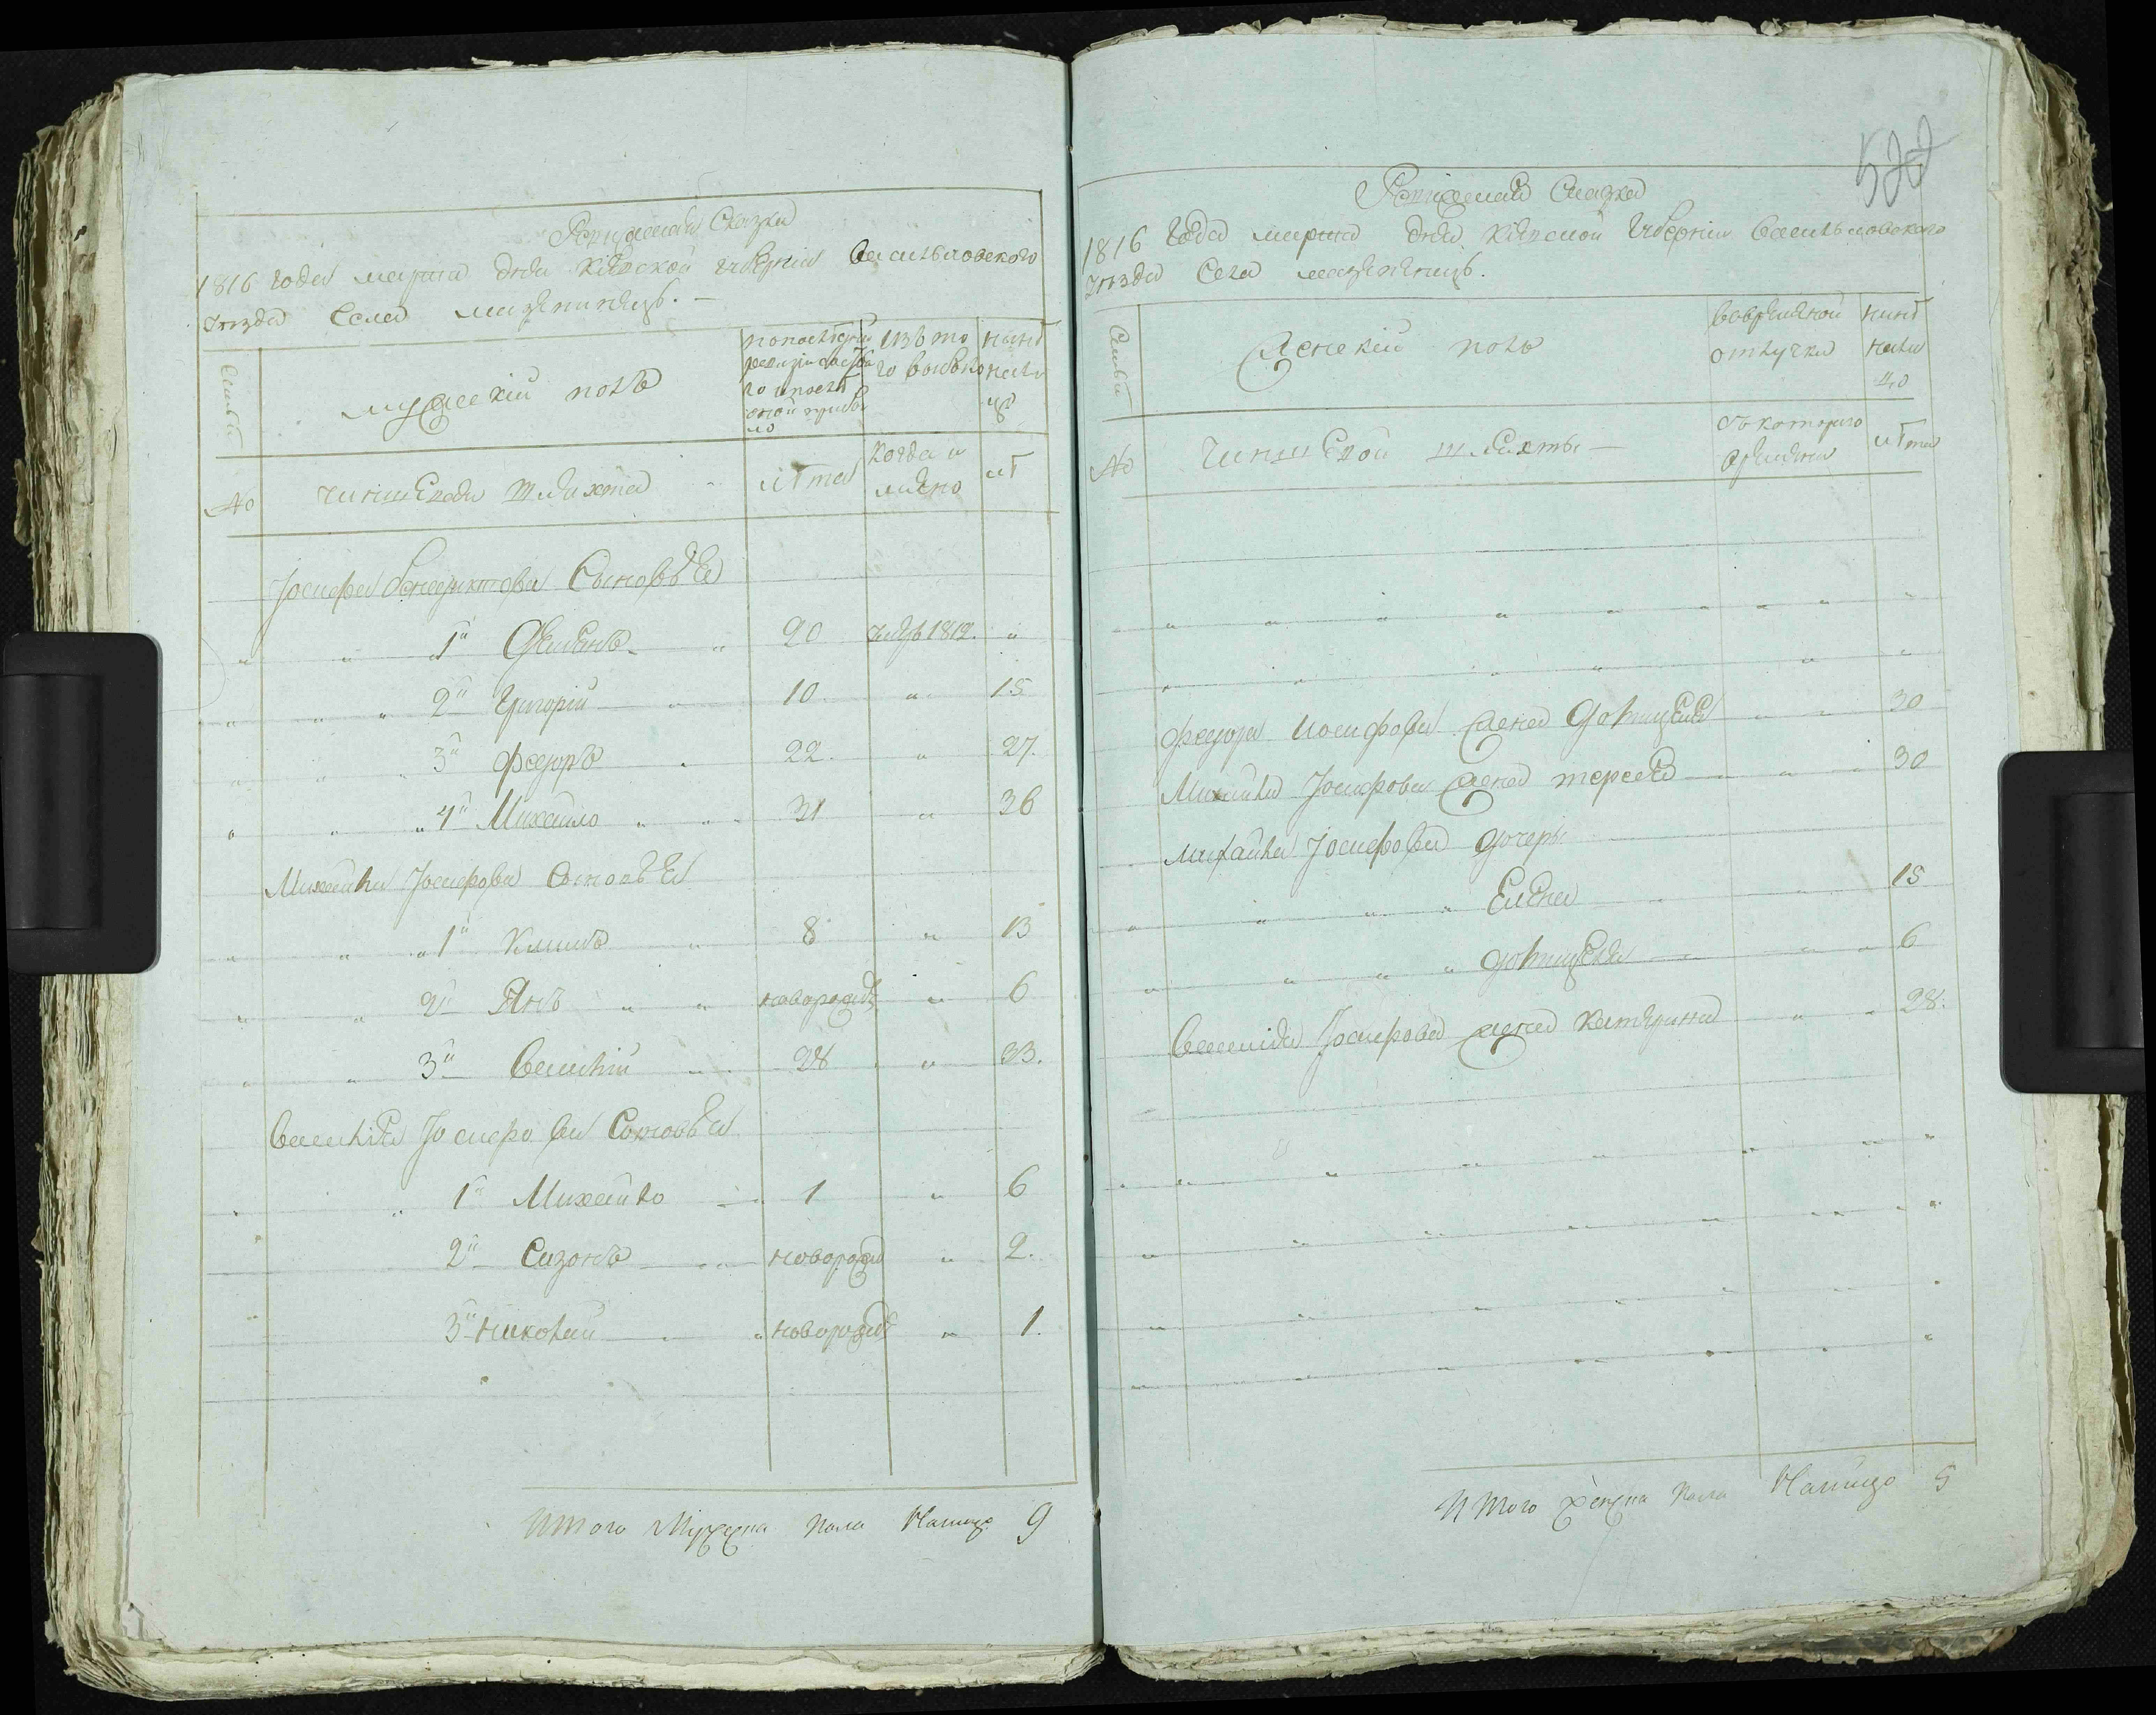 Ревижская Сказка
1816 года марта дня Кіевской губерніи Васильковского
уезда Села мазепинецъ. —
Семьи
мужескій полъ
по последней ревизіи состояло и после оной прибыло
изъ то го выбыло
ныне на ли цо
№
чиншевая шляхта
лета
когда и
ле
Іосифа Бенедиктова Сыновья
1й 20 1812. "
2й Григорій 10. " 15
3й федоръ 22. " 27.
4й Михайло 31 " 36
Михайла Іосифова Сыновья
1й Климъ 8 " 13
2й Янъ новорожд " 6
3й Василій 28 " 33.
Василія Іосифова Сыновья
1й Михайло 1 " 6
2й Сазонъ новорожд " 2.
3й Николай новорожд " 1.
Итого Мужеска пола Налицо 9
Ревижская Сказка
1816 года марта дня Кіевской губерніи Васильковского
уезда Села мазепинецъ.
Семьи
Женскій полъ
вовременной
отлучки
ныне
нали
цо
№
чиншевой шляхты —
съ которого
времени
лета
федора Іосифова жена Домицеля 30
Михайла Іосифова жена тереса 30
михайла Іосифова дочери
Елена 15
Домицеля 6
Василія Іосифова жена Катерина 28.
Итого женска пола Налицо 5